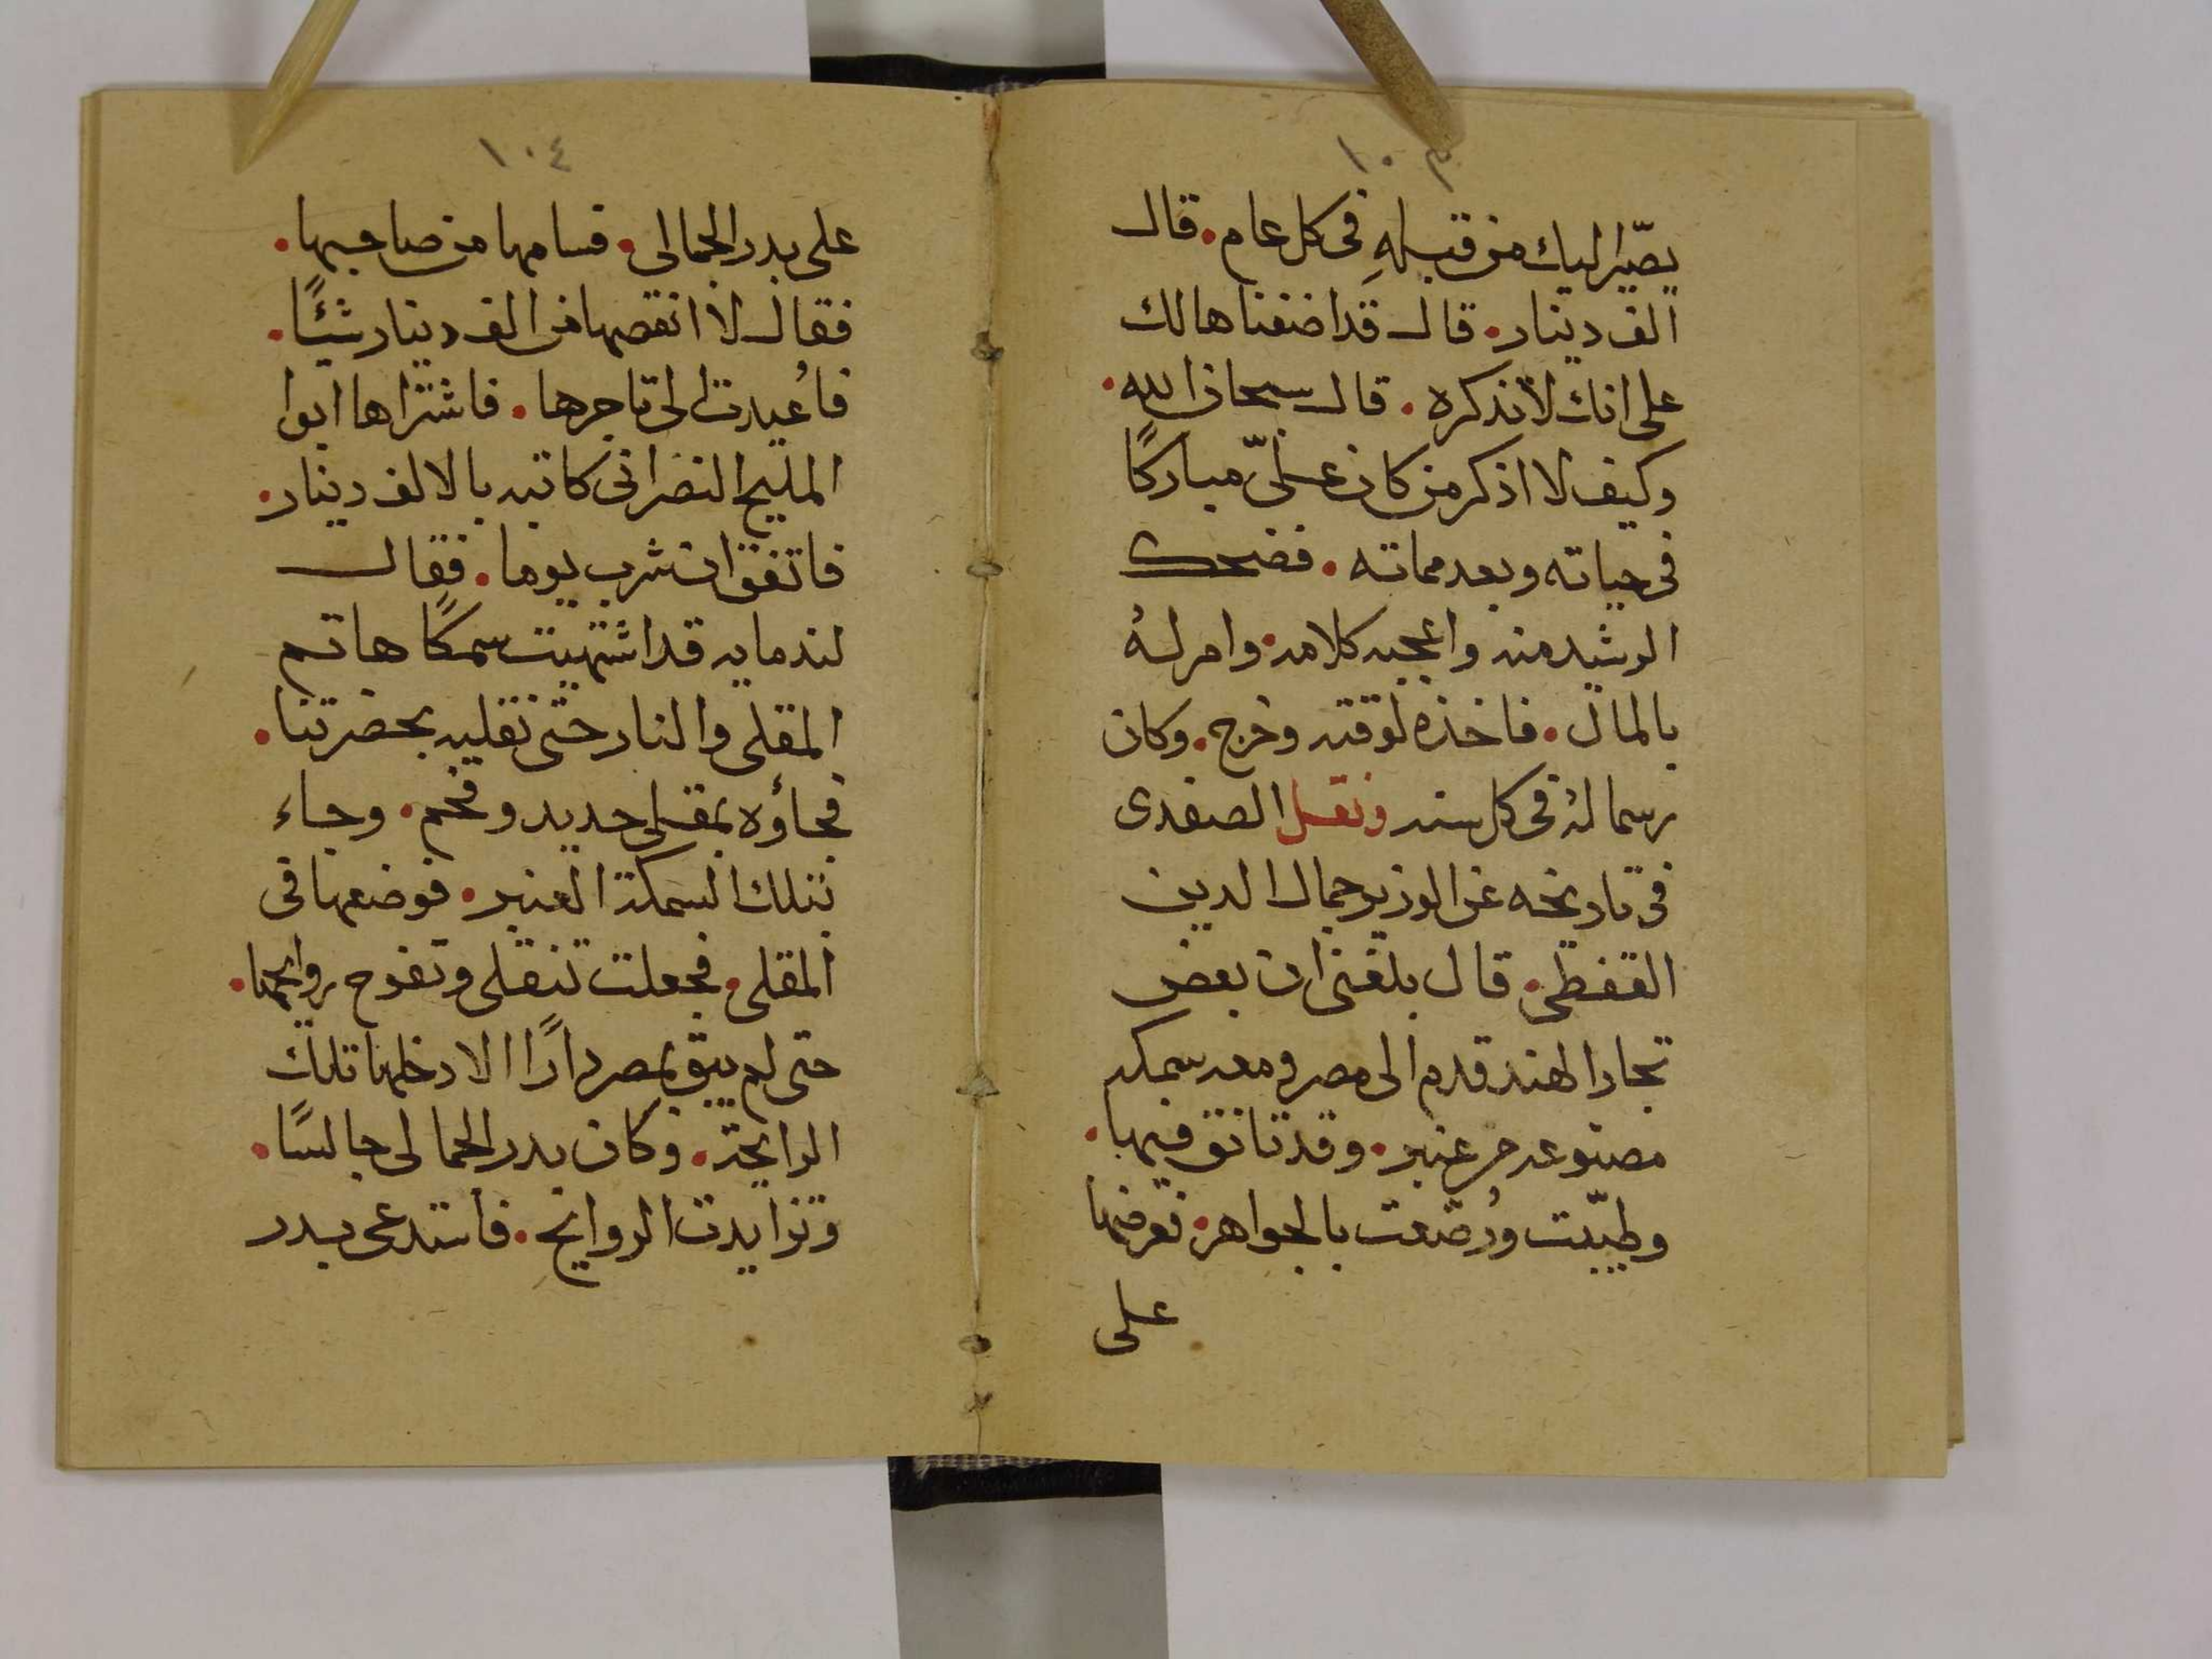 ١٠٣
يصّير اليك من قبلهِ فى كل عام. قال
الف دينار. قال قد اضفناها لك
على انك لا تذكره. قال سبحان الله.
وكيف لا اذكر من كان علىّ مباركًا
فى حياته وبعد مماته. فضحك
الرشيد منه واعجبه كلامه. وامر لهُ
بالمال. فاخذه لوقته وخرج. وكان
رسما لهُ فى كل سنه ونقل الصفدى
فى تاريخه عن الوزير جمال الدين
القفطى. قال بلغنى ان بعض
تجار الهند قدم الى مصر ومعه سمكه
مصنوعه من عنبر. وقد تانق فيها.
وطيّبت ورُصّعت بالجواهر. فعرضها
على
١٠٤
على بدر الجمالى. فسامها من صاحبها.
فقال لا انقصها من الف دينار شيئًا.
فاُعيدت الى تاجرها. فاشتراها ابوا
المليح النصرانى كاتبه بالالف دينار.
فاتفق ان شرب يوما. فقال
لندمايه قد اشتهيت سمكًا هاتم
المقلى والنار حتى نقليه بحضرتنا.
فجاؤه بمقلى حديد وفحم. وجاء
بتلك السمكة العنبر. فوضعها فى
المقلى. فجعلت تنقلى وتفوح روايحها.
حتى لم يبق بمصر دارًا الا دخلها تلك
الرايحة. وكان بدر الجمالى جالسًا.
وتزايدت الروايح. فاستدعى بدر